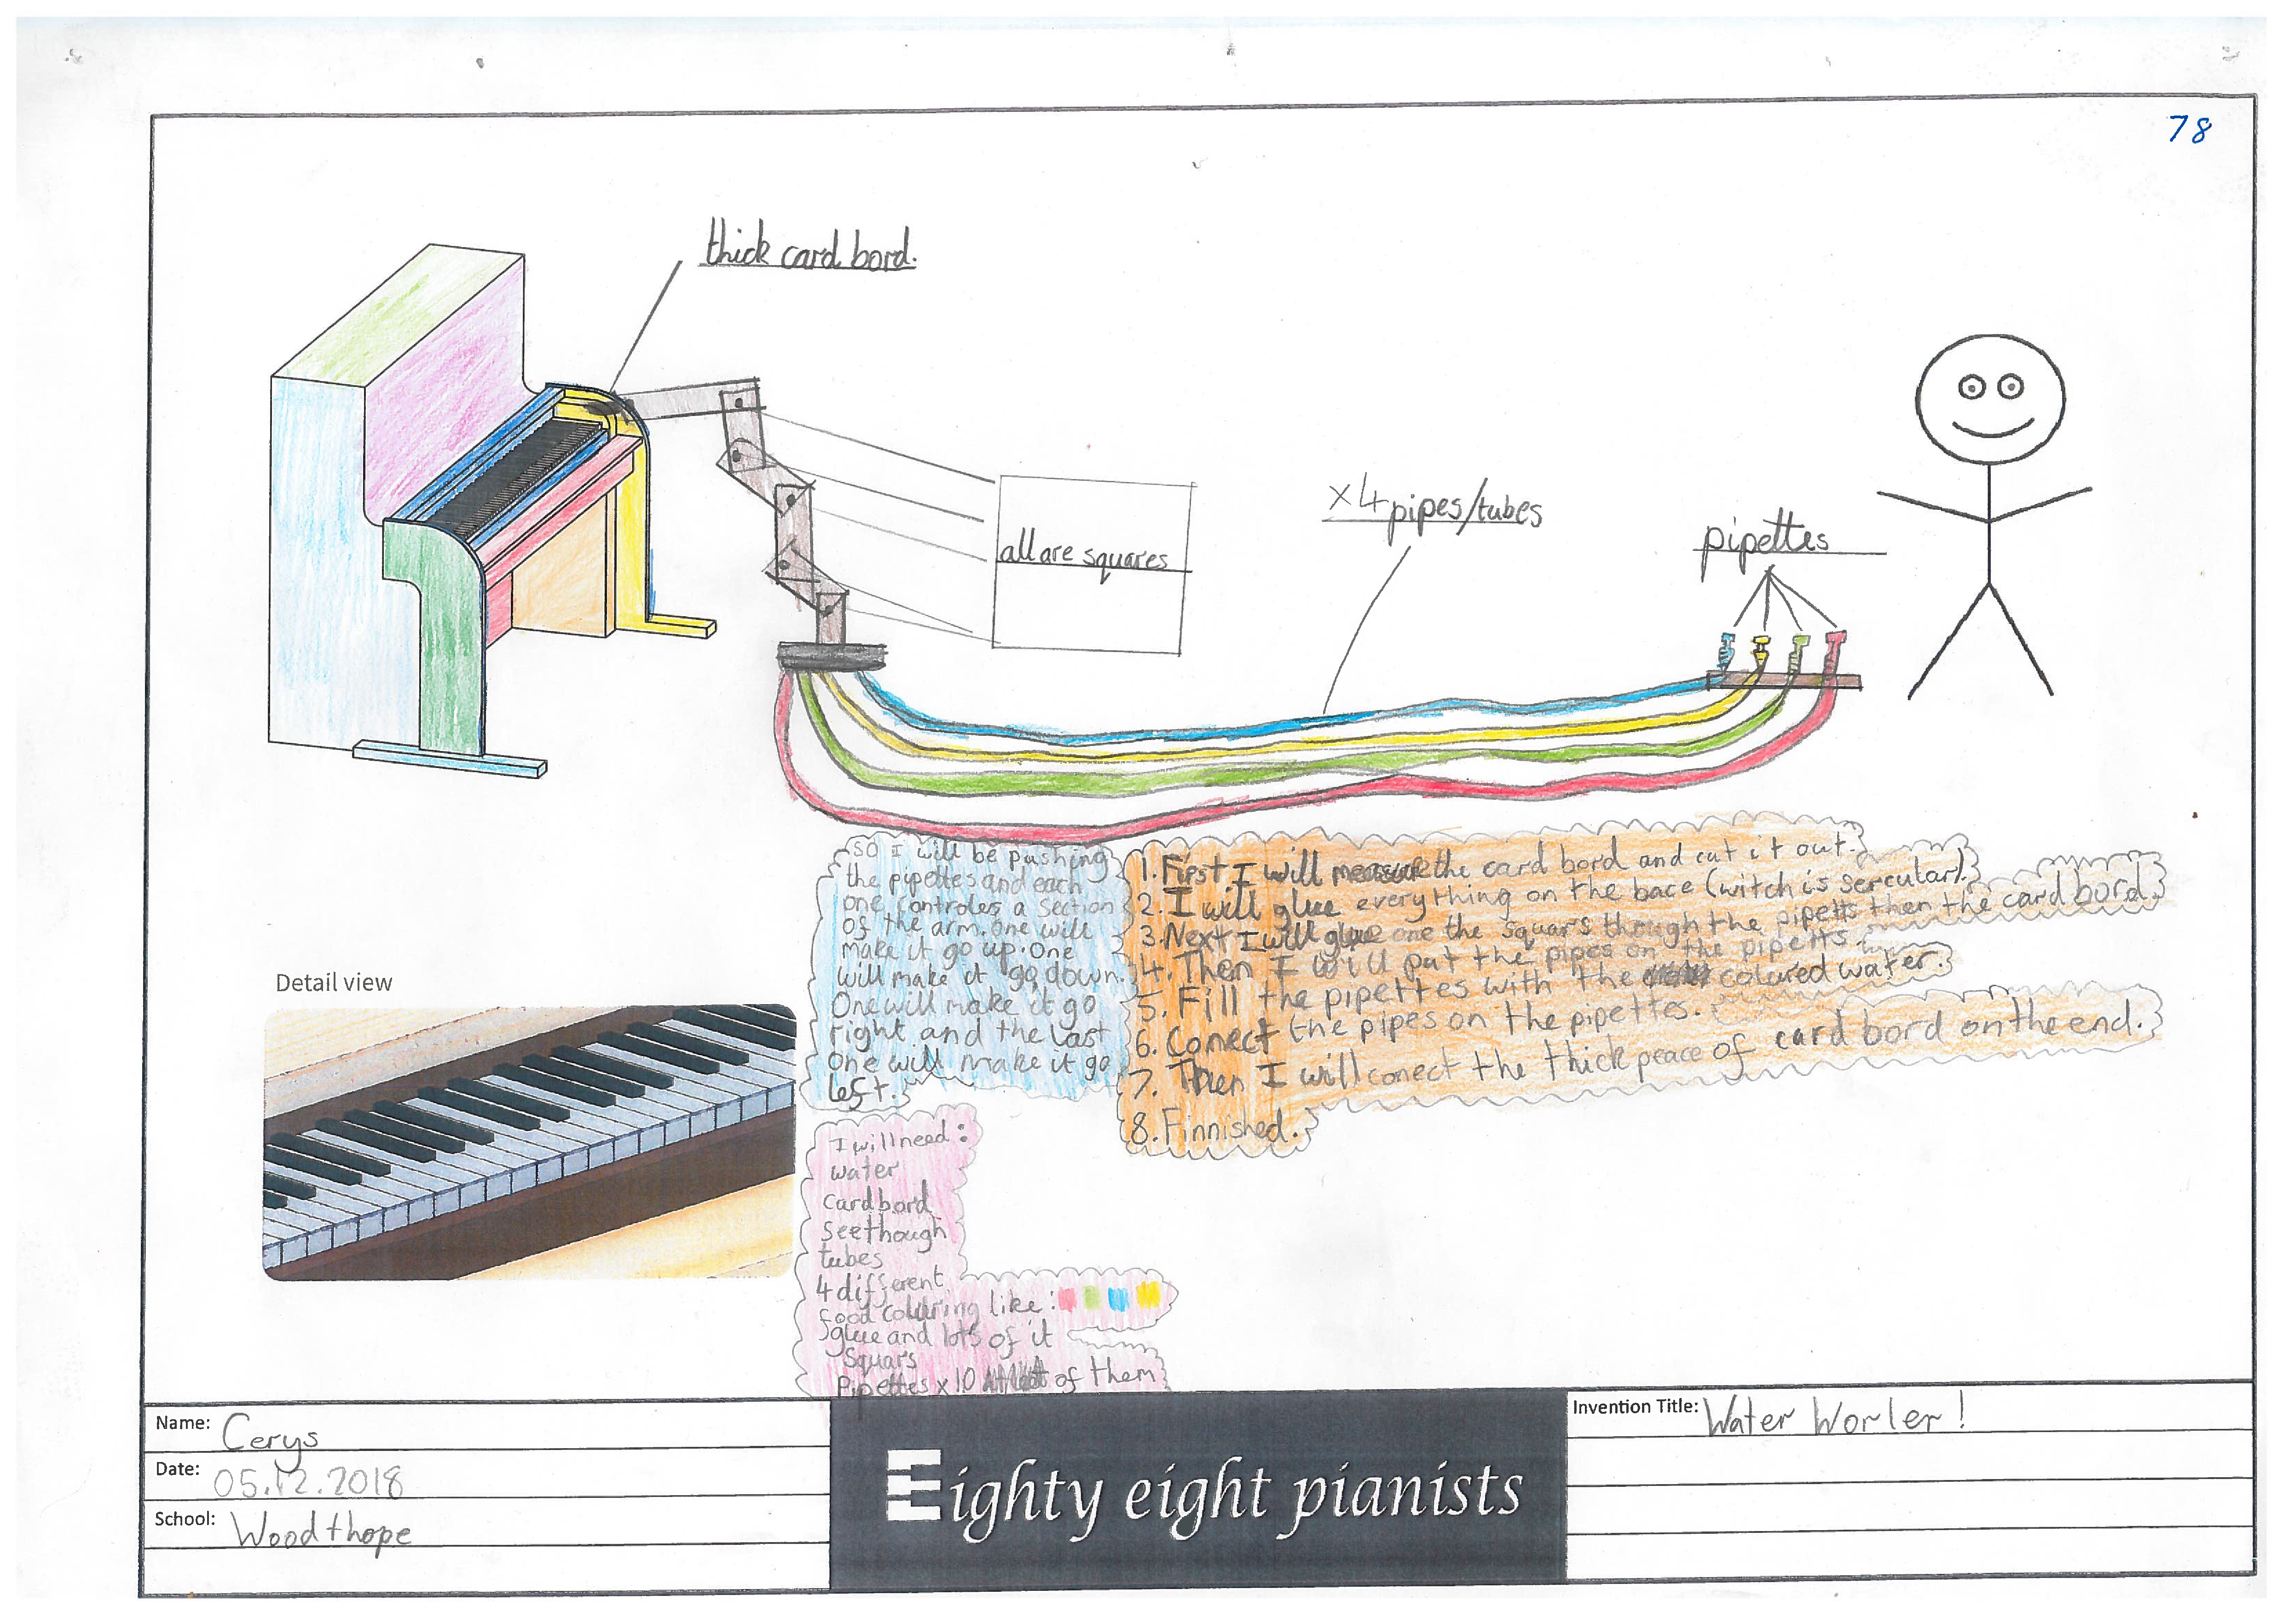 78
thick card bord.
all are squares
x4 pipes/tubes
pipettes
so I will be pushing
the pipettes and each
one controles a section
of the arm. one will
make it go up. one
will make it go down.
One will make it go
right and the last
one will make it go
left.
1. First I will measure the card bord and cut it out.
2. I will glue everything on the bace (witch is sercular).
3. Next I will glue one the squars though the pipetts then the card bord.
4. Then I will put the pipes on the pipetts.
5. Fill the pipettes with the coloured water.
6. Conect the pipes on the pipettes.
7. Then I will conect the thick peace of card bord on the end.
8. Finnished.
I will need:
water
card bord
seethough
tubes
4 different
food colouring like:
glue and lots of it
Squars
Pipettes x 10 of them
Detail view
Name: Cerys
Date: 05.12.2018
School: Woodthope
Eighty eight pianists
Invention Title: Water Worler!